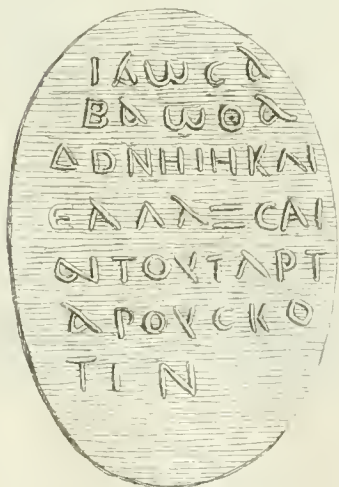 ΙΑωCΑ
ΒΑωΘΑ
ΔΟΝΗΙΗΚΑΙ
ЄΑΛΑΞCΑΙ
ΔΙΤΟΥΤΑΡΤ
ΑΡΟΥCΚΟ
ΤΙ Ν